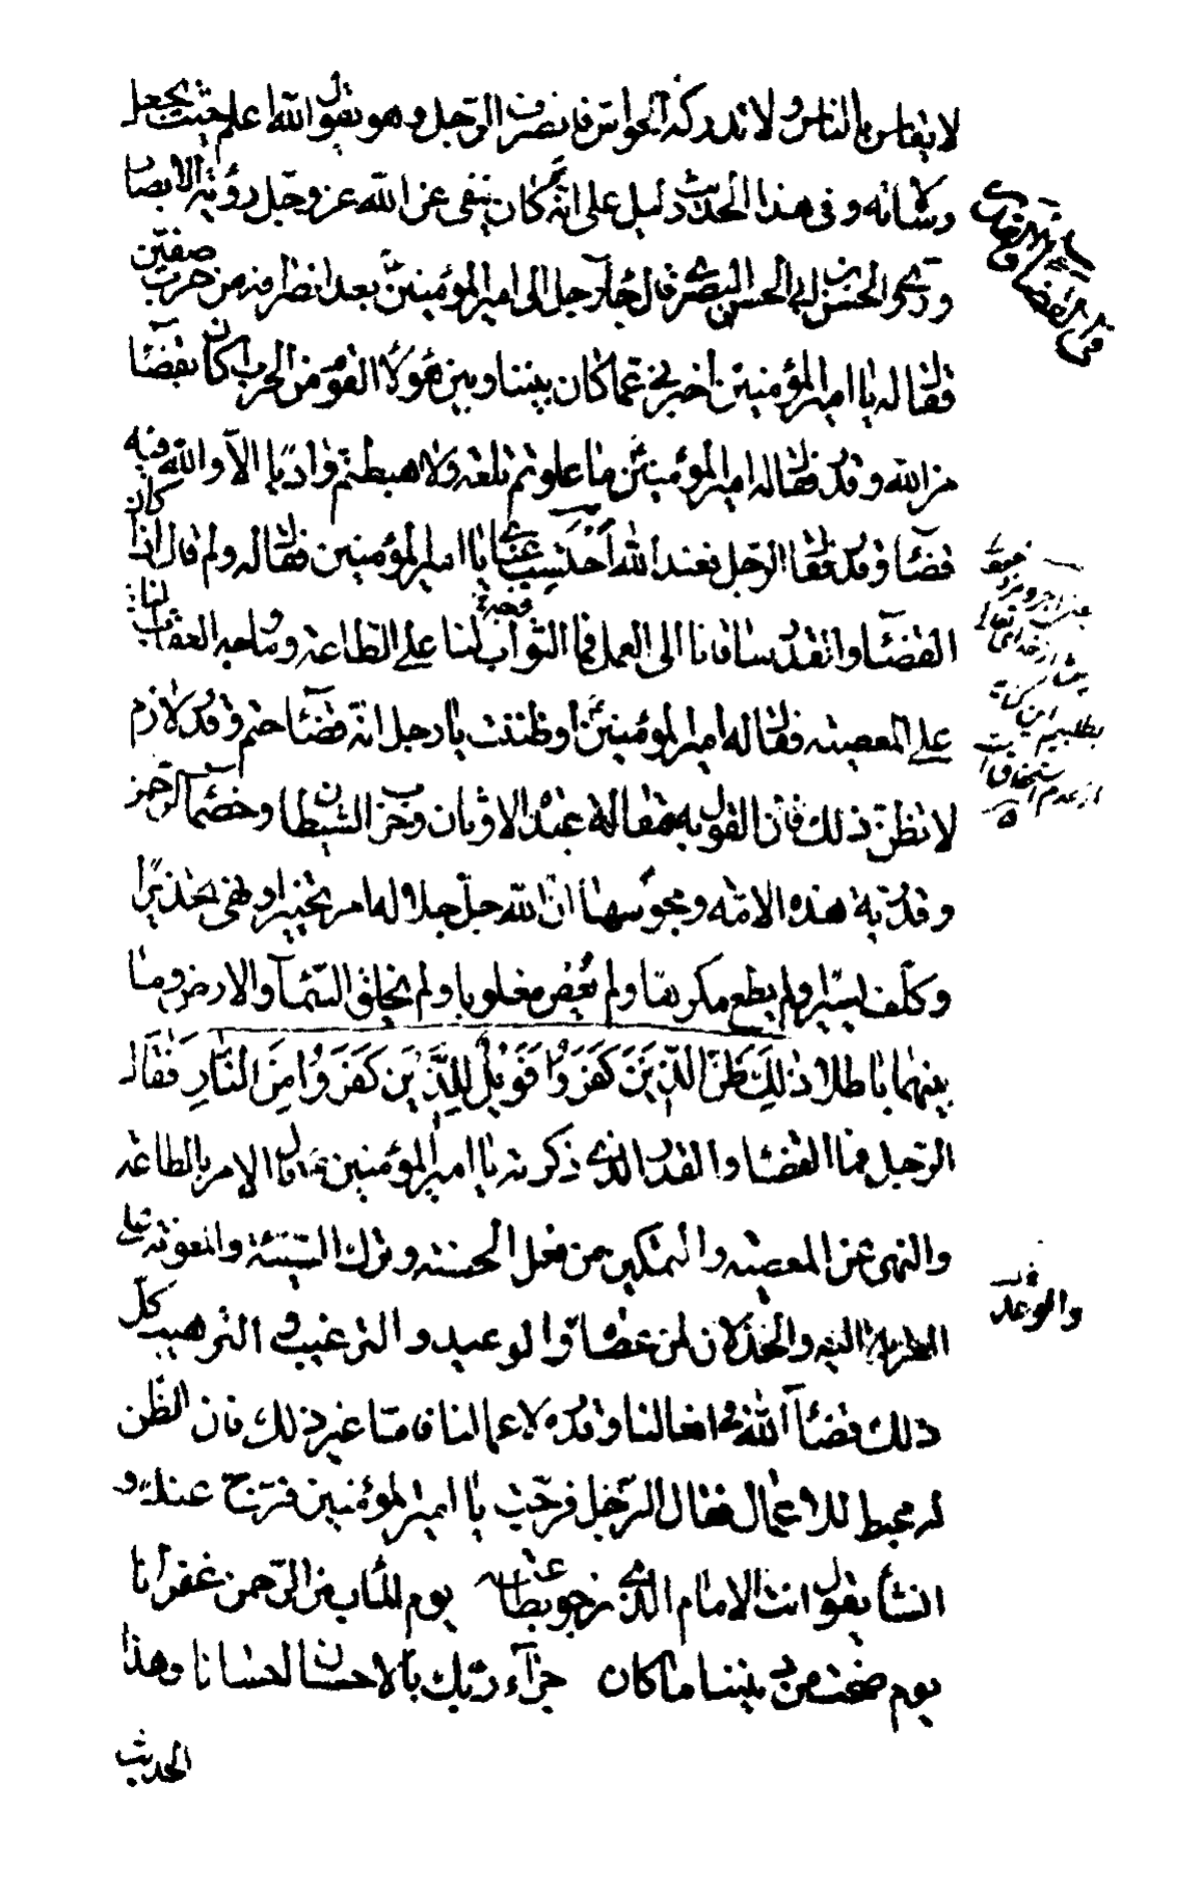 لا يقاس بالناس ولا تدركه الحواس فانصرف الرجل وهو يقول الله اعلم حيث يجعل
رسالاته وفى هذا الحديث دليل على انه كان ينفى عن الله عز وجل رؤية الابصار
وروى الحسن بن ابى الحسن البصرى قال جاء رجل الى امير المؤمنين بعد انصرافه من حرب صفين
فقال له يا امير المؤمنين اخبرنى عما كان بيننا وبين هؤلاء القوم من الحرب اكان بقضاء
من الله وقدر فقال له امير المؤمنين ما علوتم تلعة ولا هبطتم واديا الا والله فيه
قضاء وقدر فقال الرجل فعند الله احتسب عنائى يا امير المؤمنين فقال له ولم قال اذا كان
القضاء والقدر ساقانا الى العمل فما الثواب لنا على الطاعة وما وجه العقاب لنا
على المعصية فقال له امير المؤمنين اوظننت يا رجل انه قضاء حتم وقدر لازم
لا تظن ذلك فان القول به مقالة عبدة الاوثان وحزب الشيطان وخصماء الرحمن
وقدرية هذه الامة ومجوسها ان الله جل جلاله امر تخييرا ونهى تحذيرا
وكلف يسيرا ولم يطع مكرها ولم يعص مغلوبا ولم يخلق السماء والارض وما
بينهما باطلا ذٰلِكَ ظَنُّ الَّذِينَ كَفَرُوا فَوَيْلٌ لِلَّذِينَ كَفَرُوا مِنَ النَّارِ فقال
الرجل فما القضاء والقدر الذى ذكرته يا امير المؤمنين قال الامر بالطاعة
والنهى عن المعصية والتمكين من فعل الحسنة وترك السيئة والمعونة على
القربة اليه والخذلان لمن عصاه والوعيد والترغيب والترهيب كل
والوعد
ذلك قضاء الله فى افعالنا وقدره لاعمالنا فاما غير ذلك فان الظن
له محبط للاعمال فقال الرجل فرجت يا امير المؤمنين فرج عنك و
انشأ يقول انت الامام الذى نرجو بطاعته يوم المآب من الرحمن غفرانا
يوم بيننا ما كان جزاء ربك بالاحسان احسانا وهذا
الحديث